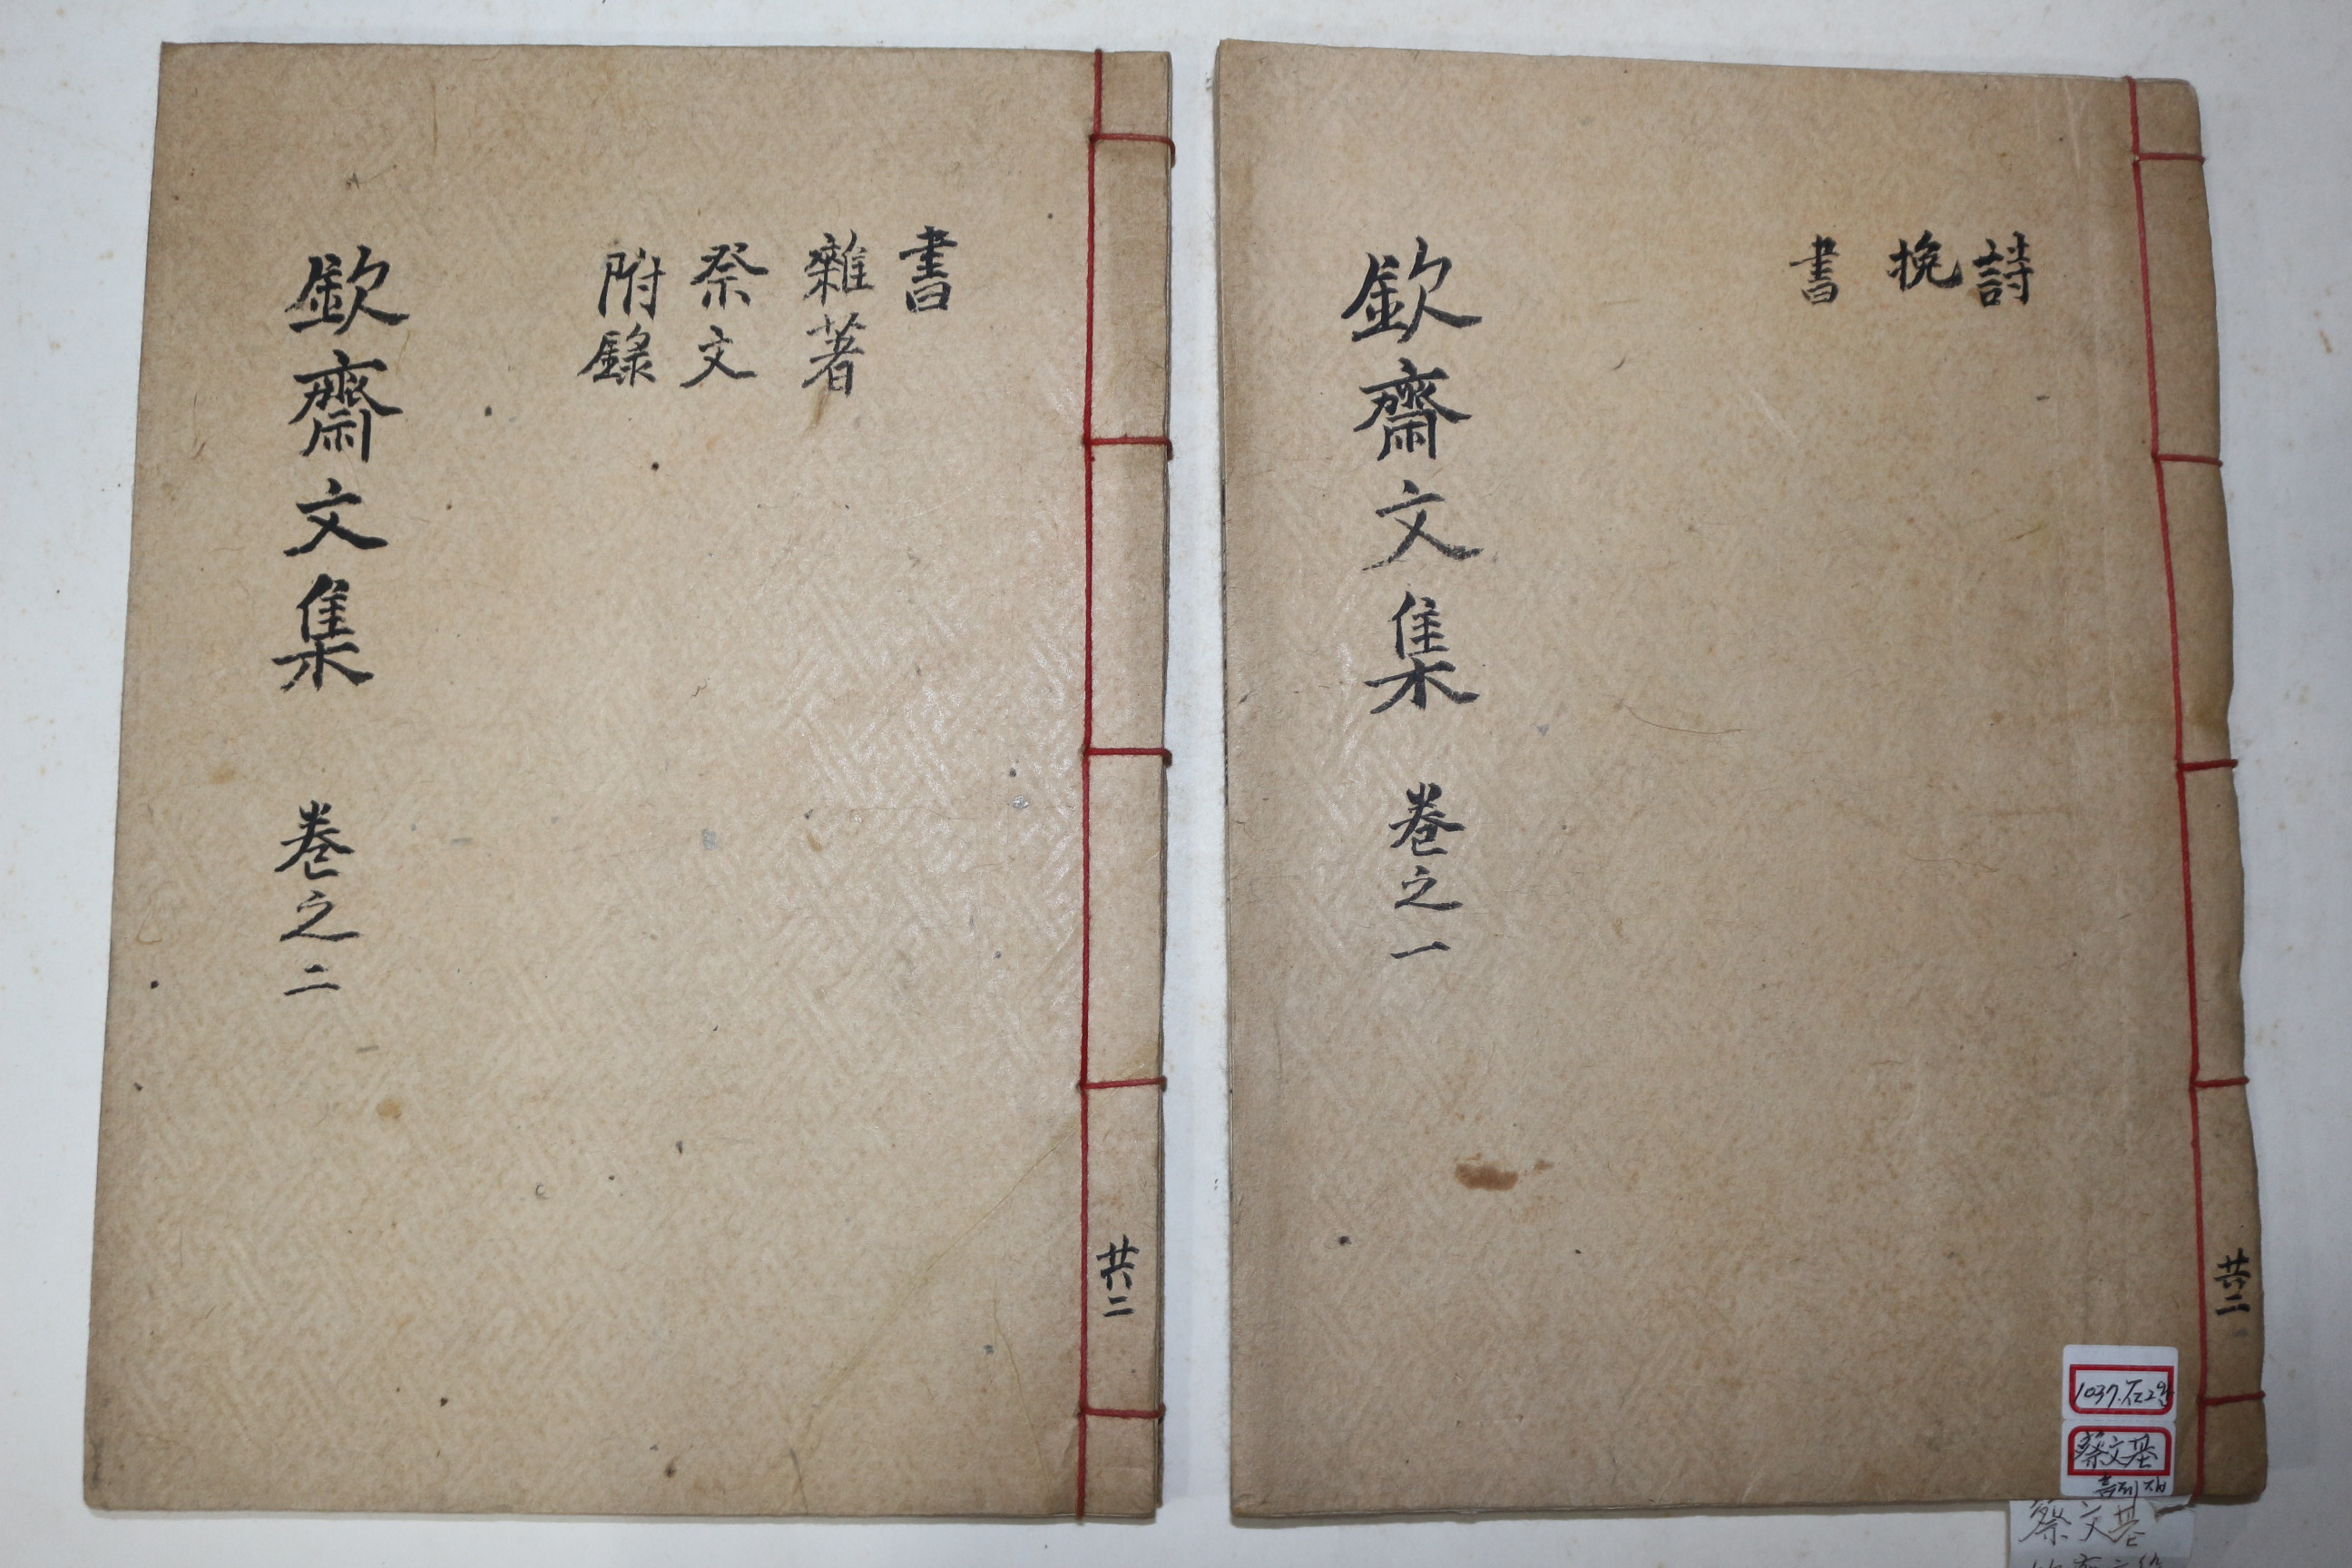 詩
挽
書
欽齋文集 卷之一
共二
蔡文基
蔡文基
書
雜著
祭文
附錄
欽齋文集 卷之二
共二